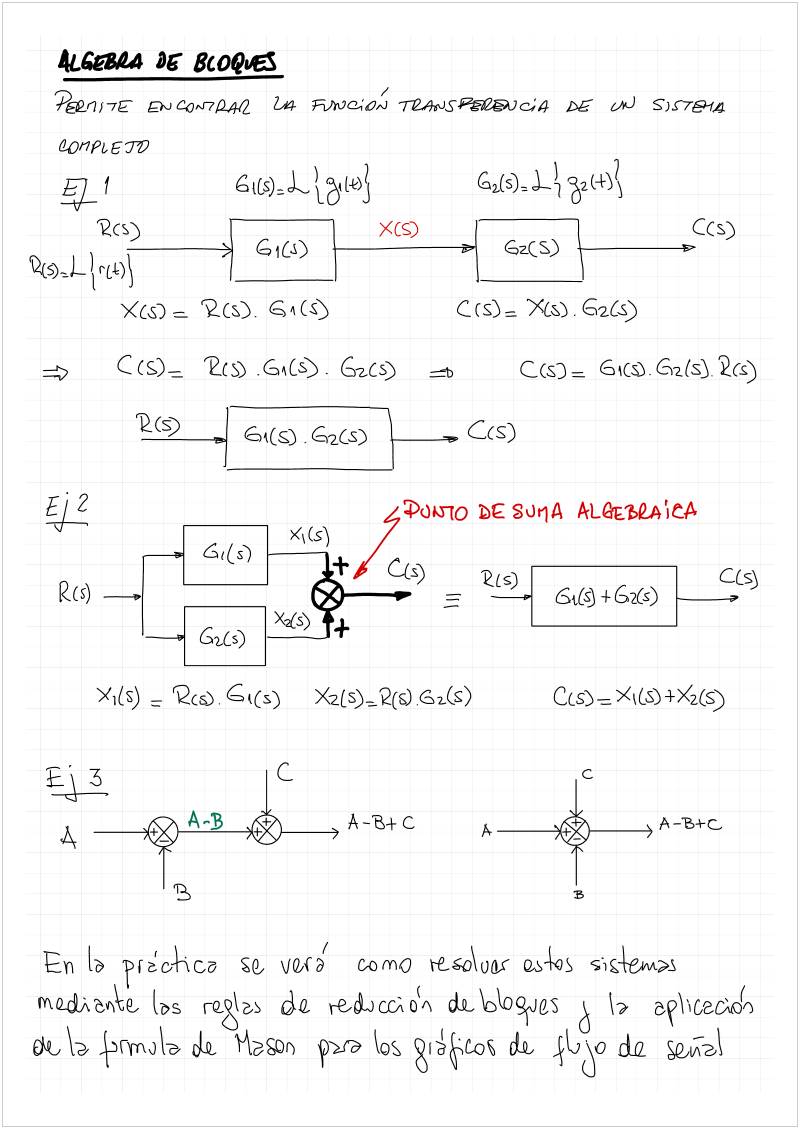 ALGEBRA DE BLOQUES
PERMITE ENCONTRAR LA FUNCIÓN TRANSFERENCIA DE UN SISTEMA
COMPLEJO
EJ 1
G1(s)=L{g1(t)}
G2(s)=L{g2(t)}
R(s)
R(s)=L{r(t)}
G1(s)
X(s)
G2(s)
C(s)
X(s) = R(s). G1(s)
C(s)= X(s). G2(s)
⇒ C(s)= R(s).G1(s). G2(s) ⇒ C(s)= G1(s).G2(s).R(s)
R(s)
G1(s).G2(s)
C(s)
Ej 2
PUNTO DE SUMA ALGEBRAÍCA
R(s)
G1(s)
X1(s)
+
G2(s)
X2(s)
+
C(s)
≡
R(s)
G1(s)+G2(s)
C(s)
X1(s) = R(s). G1(s) X2(s)=R(s).G2(s) C(s)=X1(s)+X2(s)
Ej 3
A
+
-
B
A-B
C
+
+
A-B+C
A
C
+
+
-
B
A-B+C
En la práctica se verá como resolver estos sistemas
mediante las reglas de reducción de bloques y la aplicación
de la formula de Mason para los gráficos de flujo de señal